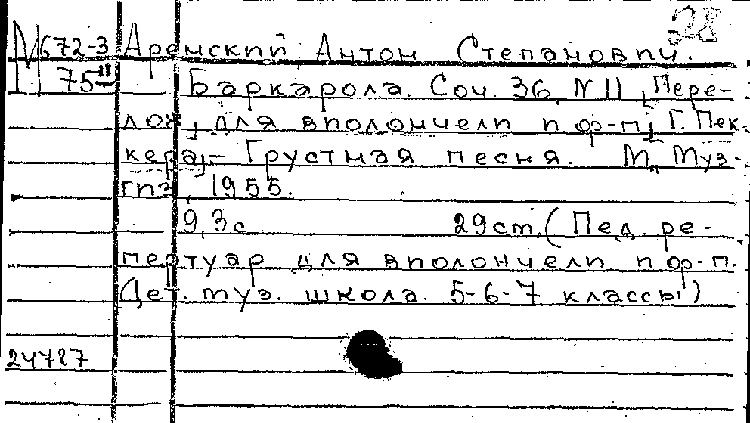 28
М 672-3 Аренский, Антон Степанович.
75II Баркарола. Соч. 36, N 11, [Пере-
лож.] для виолончели и ф-п. [Г. Пек-
кера]. - Грустная песня. М., Муз-
гиз, 1955.
9, 3 с. 29 см. (Пед. ре-
пертуар для виолончели и ф-п.
Дет. муз. школа. 5-6-7 классы)
24787